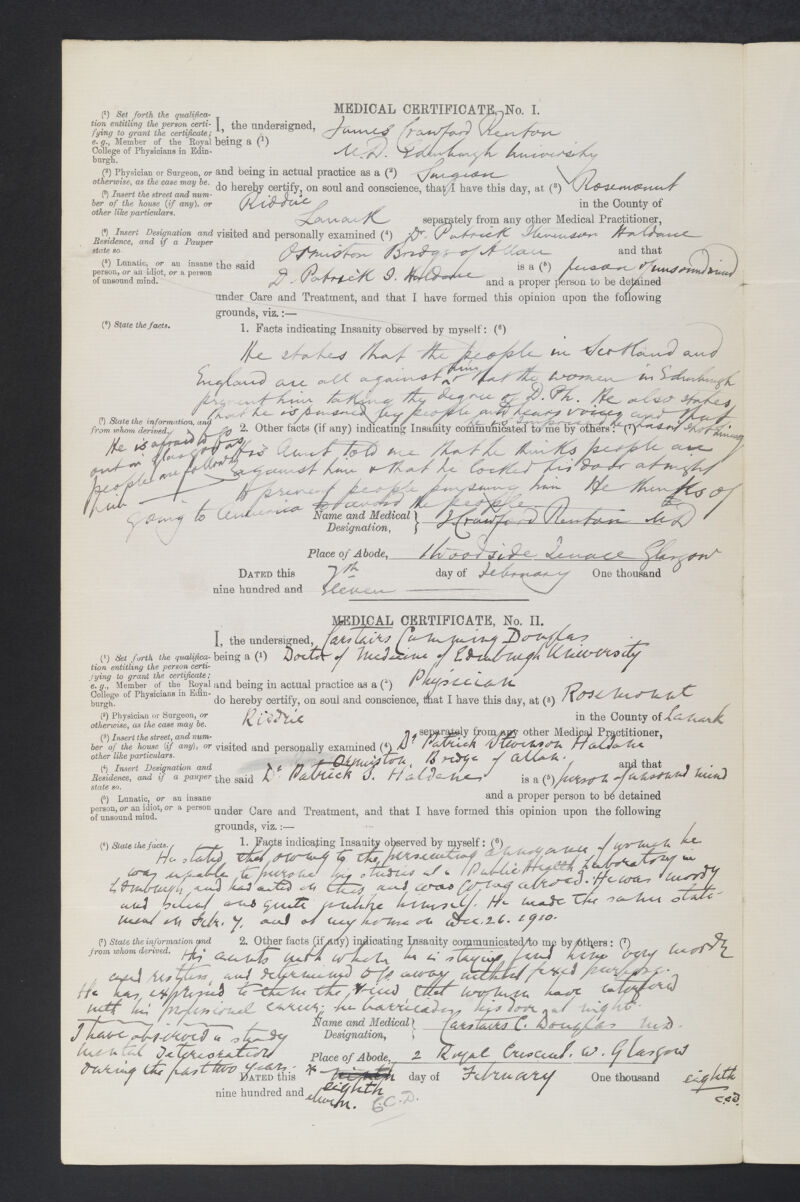 MEDICAL CERTIFICATE, No. I.
(¹) Set forth the qualifica-
tion entitling the person certi-
fying to grant the certificate;
e.g., Member of the Royal
College of Physicians in Edin-
burgh.
(²) Physician or Surgeon, or
otherwise, as the case may be.
(³) Insert the street and num-
ber of the house (if any), or
other like particulars.
(⁴) Insert Designation and
Residence, and if a Pauper
state so.
(⁵) Lunatic, or an insane
person, or an idiot, or a person
of unsound mind.
I, the undersigned, James Crawford Renton
being a (¹) M.D. Edinburgh University
and being in actual practice as a (²) Surgeon
do hereby certify, on soul and conscience, that I have this day, at (³) Rosemount
Riddrie in the County of
Lanark separately from any other Medical Practitioner,
visited and personally examined (⁴) Dr. Patrick Stevenson Haldane
Ormiston Bridge of Allan and that
the said Dr. Patrick S. Haldane is a (⁵) person of unsound mind
and a proper person to be detained
under Care and Treatment, and that I have formed this opinion upon the following
grounds, viz.:—
(⁶) State the facts.
1. Facts indicating Insanity observed by myself: (⁶)
He states that the people in Scotland and
England are all against him & that the women in Edinburgh
prevent him taking the degree of D. Ph. He also states
that he is pursued by people and hears voices and that
(⁷) State the information, and
from whom derived.
2. Other facts (if any) indicating Insanity communicated to me by others: (⁷)
He is afraid to go
out in Glasgow as
people are following
him
His Aunt told me that he thinks people are
against him & that he locked his door at night
to prevent people pursuing him He thinks of
going to America to avoid the people
Name and Medical
Designation, J Crawford Renton MD
Place of Abode, Woodside Terrace Glasgow
DATED this 7th day of February One thousand
nine hundred and Eleven
MEDICAL CERTIFICATE, No. II.
(¹) Set forth the qualifica-
tion entitling the person certi-
fying to grant the certificate;
e.g., Member of the Royal
College of Physicians in Edin-
burgh.
(²) Physician or Surgeon, or
otherwise, as the case may be.
(³) Insert the street, and num-
ber of the house (if any), or
other like particulars.
(⁴) Insert Designation and
Residence, and if a pauper
state so.
(⁵) Lunatic, or an insane
person, or an idiot, or a person
of unsound mind.
I, the undersigned, Carstairs Cumming Douglas
being a (¹) Doctor of Medicine of Edinburgh University
and being in actual practice as a (²) Physician
do hereby certify, on soul and conscience, that I have this day, at (³) Rosemount
Riddrie in the County of Lanark
separately from any other Medical Practitioner,
visited and personally examined (⁴) Dr Patrick Stevenson Haldane
Ormiston, Bridge of Allan. and that
the said Dr Patrick S. Haldane is a (⁵) person of unsound mind
and a proper person to be detained
under Care and Treatment, and that I have formed this opinion upon the following
grounds, viz.:—
(⁶) State the facts.
1. Facts indicating Insanity observed by myself: (⁶)
He stated that, owing to the persecuting annoyance of women he
was unable to pursue his studies at a Public Health Laboratory in
Edinburgh, and had acted on this, and was going abroad. He was moody
and silent and quite unlike himself. He made the same state-
ment on Feb. 7, and at my house on Dec. 26. 1910.
(⁷) State the information and
from whom derived.
2. Other facts (if any) indicating Insanity communicated to me by others: (⁷)
His aunts with whom he is staying find him very moody
and restless, and determined to go away without fixed purpose.
He has expressed to them the view that women have interfered
with his professional career; he barricades his door at night.
I have observed a steady
mental deterioration
during the past two years.
Name and Medical
Designation, Carstairs C. Douglas M.D.
Place of Abode, 2 Royal Crescent. W. Glasgow
DATED this eighth day of February One thousand eighth
C.C.D.
nine hundred and eleven. C.C.D.